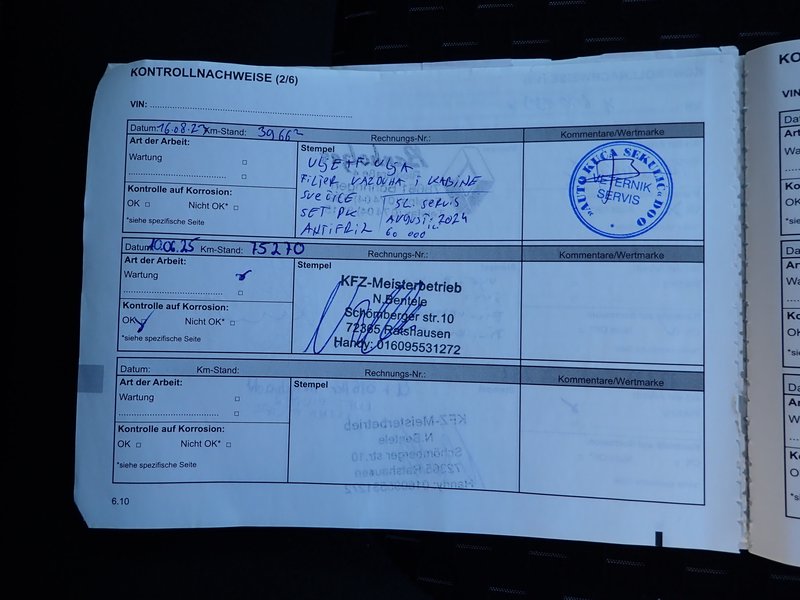 KONTROLLNACHWEISE (2/6)
VIN:
Datum: 16.08.23 Km-Stand: 39662 Rechnungs-Nr.: Kommentare/Wertmarke
Art der Arbeit:
Wartung
Kontrolle auf Korrosion:
OK Nicht OK*
*siehe spezifische Seite
Stempel
ULJE + F. ULJA
FILTER VAZDUHA i KABINE
SVEĆICE
SL. SERVIS
SET PK
AVGUST: 2024
ANTIFRIZ
60 000
"AUTO KUĆA SEKULIĆ" DOO
VETERNIK
SERVIS
Datum: 10.06.25 Km-Stand: 75270 Rechnungs-Nr.: Kommentare/Wertmarke
Art der Arbeit:
Wartung
Kontrolle auf Korrosion:
OK Nicht OK*
*siehe spezifische Seite
Stempel
KFZ-Meisterbetrieb
N.Bentele
Schömberger str.10
72365 Ratshausen
Handy: 016095531272
Datum: Km-Stand: Rechnungs-Nr.: Kommentare/Wertmarke
Art der Arbeit:
Wartung
Kontrolle auf Korrosion:
OK Nicht OK*
*siehe spezifische Seite
Stempel
6.10
KO
VIN